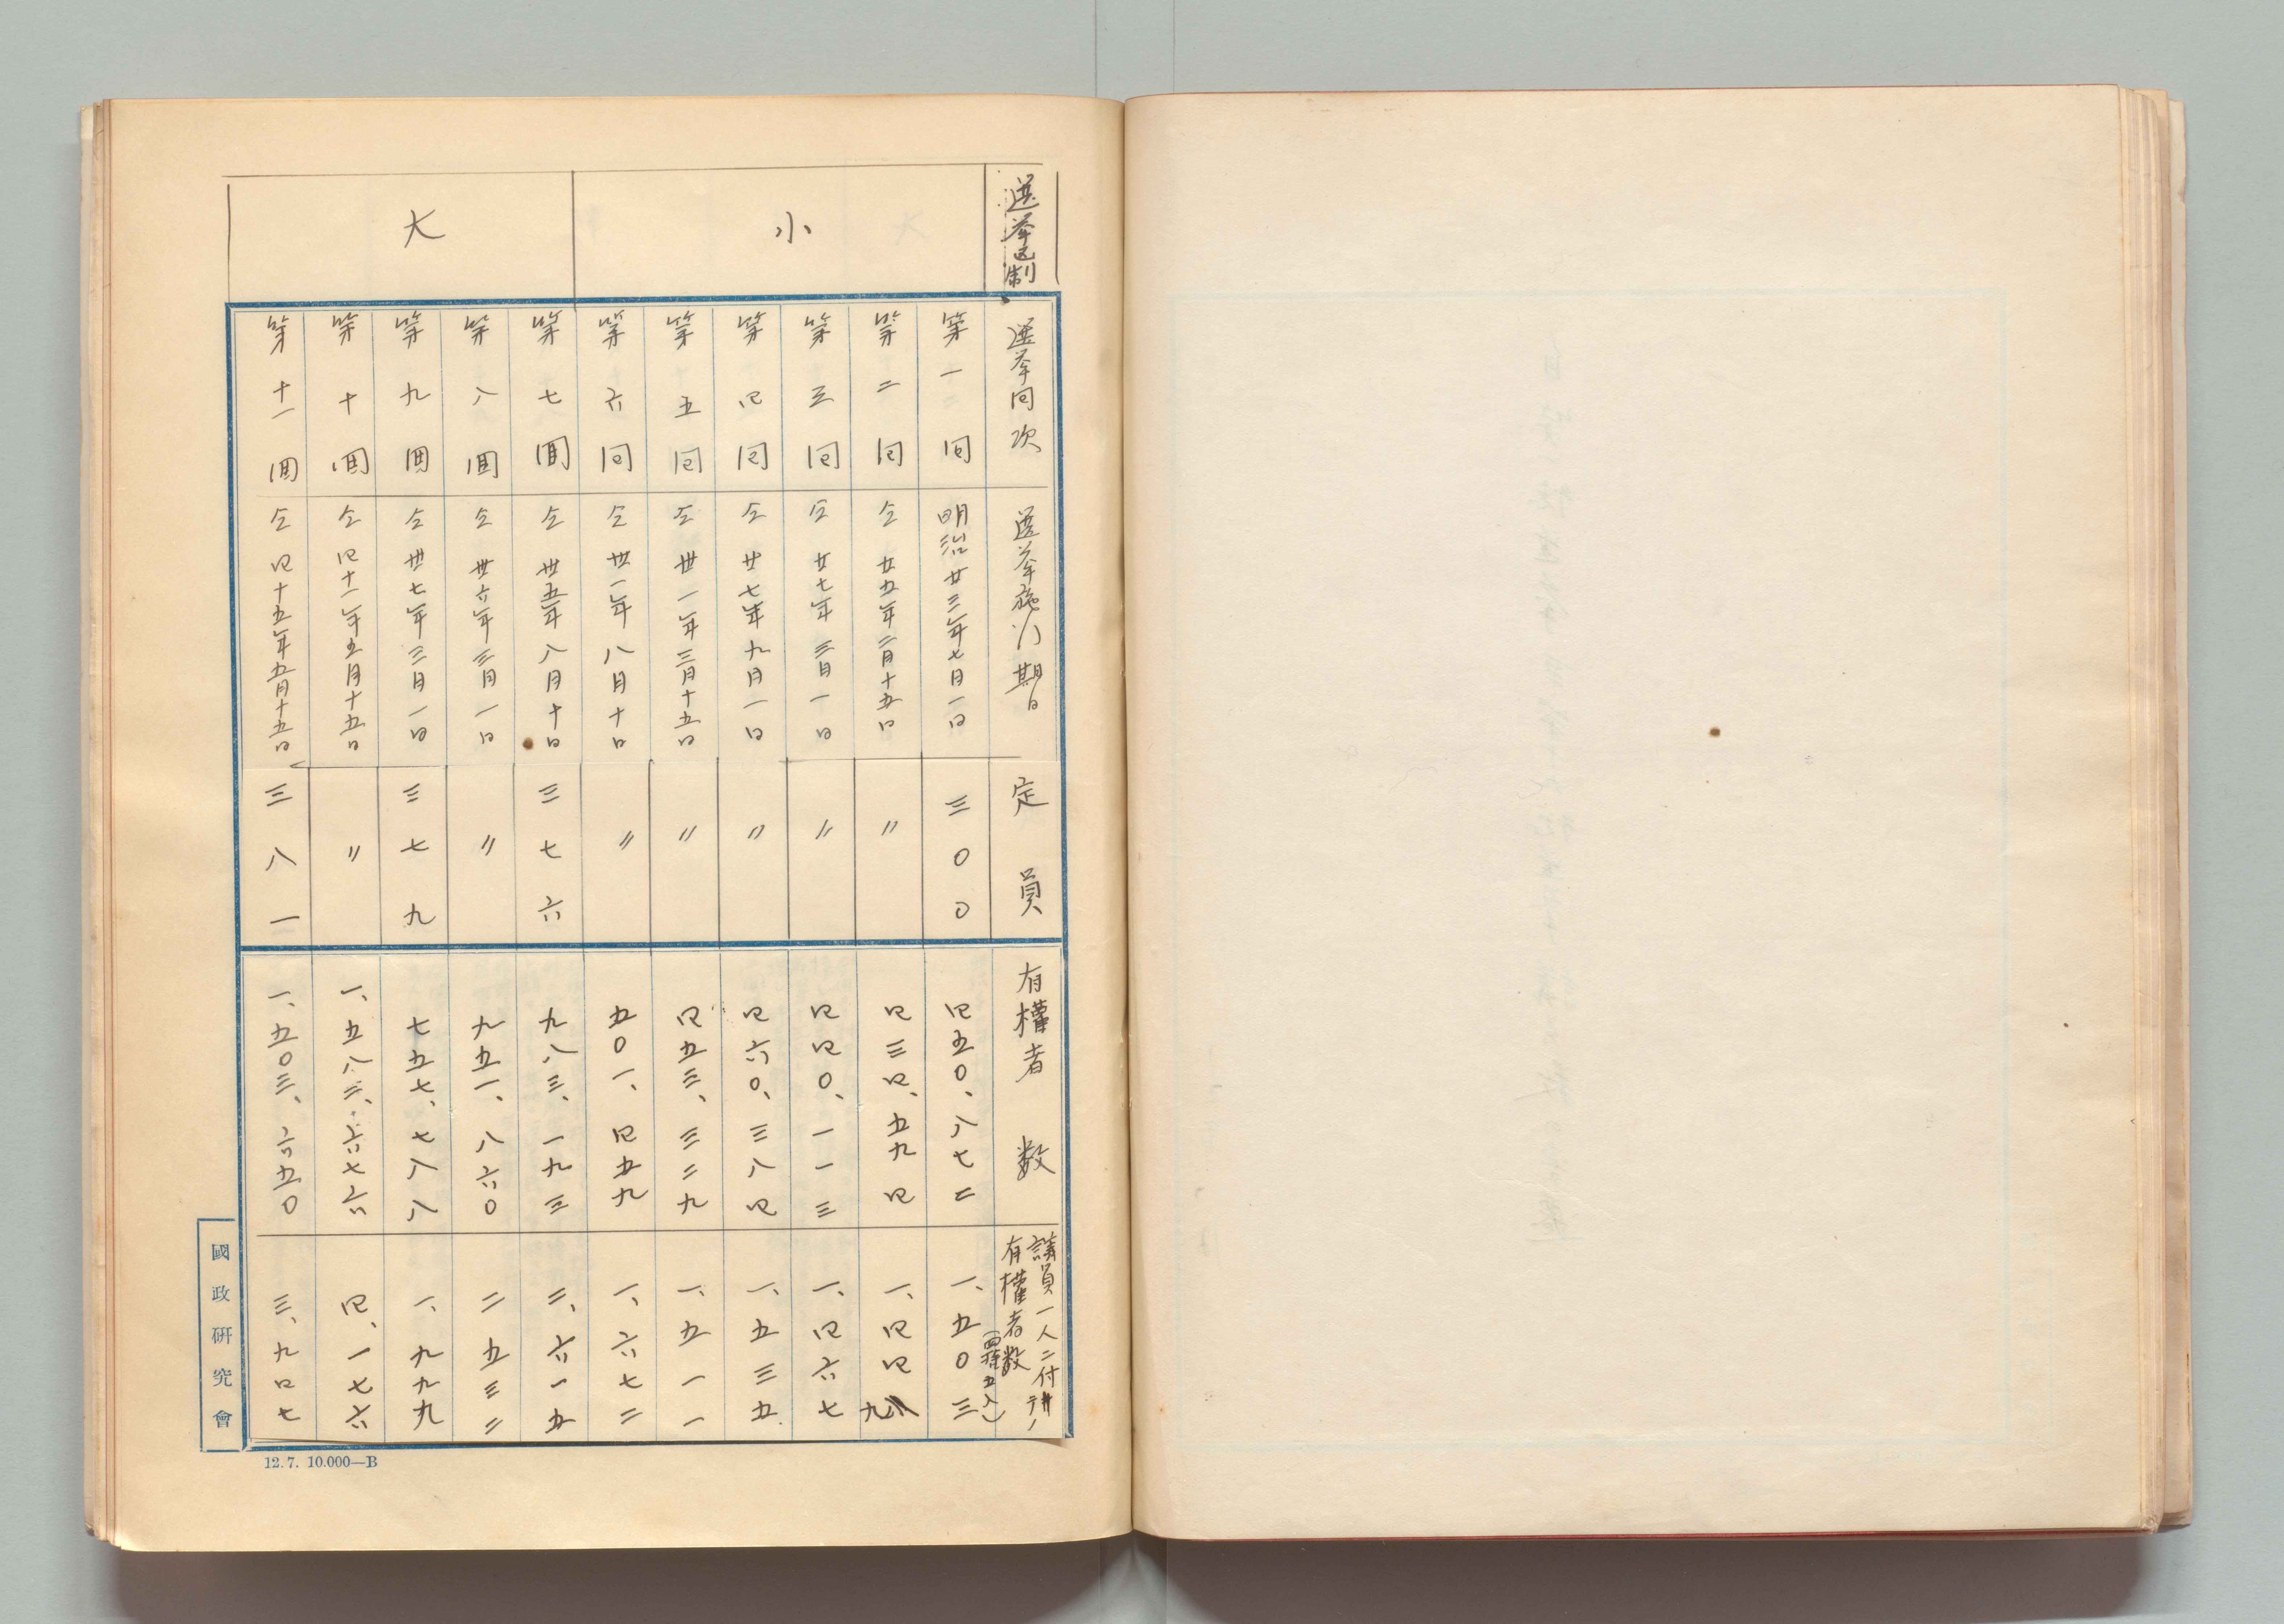 選挙区制 選挙回次 選挙施行期日 定員 有權者数 議員一人ニ付テノ
有權者数
(四捨五入)
小
第一回 明治廿三年七月一日 三〇〇 四五〇、八七二 一、五〇三
第二回 仝廿五年二月十五日 〃 四三四、五九四 一、四四九
第三回 仝廿七年三月一日 〃 四四〇、一一三 一、四六七
第四回 仝廿七年九月一日 〃 四六〇、三八四 一、五三五
第五回 仝卅一年三月十五日 〃 四五三、三二九 一、五一一
第六回 仝卅一年八月十日 〃 五〇一、四五九 一、六七二
大
第七回 仝卅五年八月十日 三七六 九八三、一九三 二、六一五
第八回 仝卅六年三月一日 〃 九五一、八六〇 二五三二
第九回 仝卅七年三月一日 三七九 七五七、七八八 一、九九九
第十回 仝四十一年五月十五日 〃 一、五八三、六七六 四、一七六
第十一回 仝四十五年五月十五日 三八一 一、五〇三、六五〇 三、九四七
國政硏究會
12.7. 10.000—B